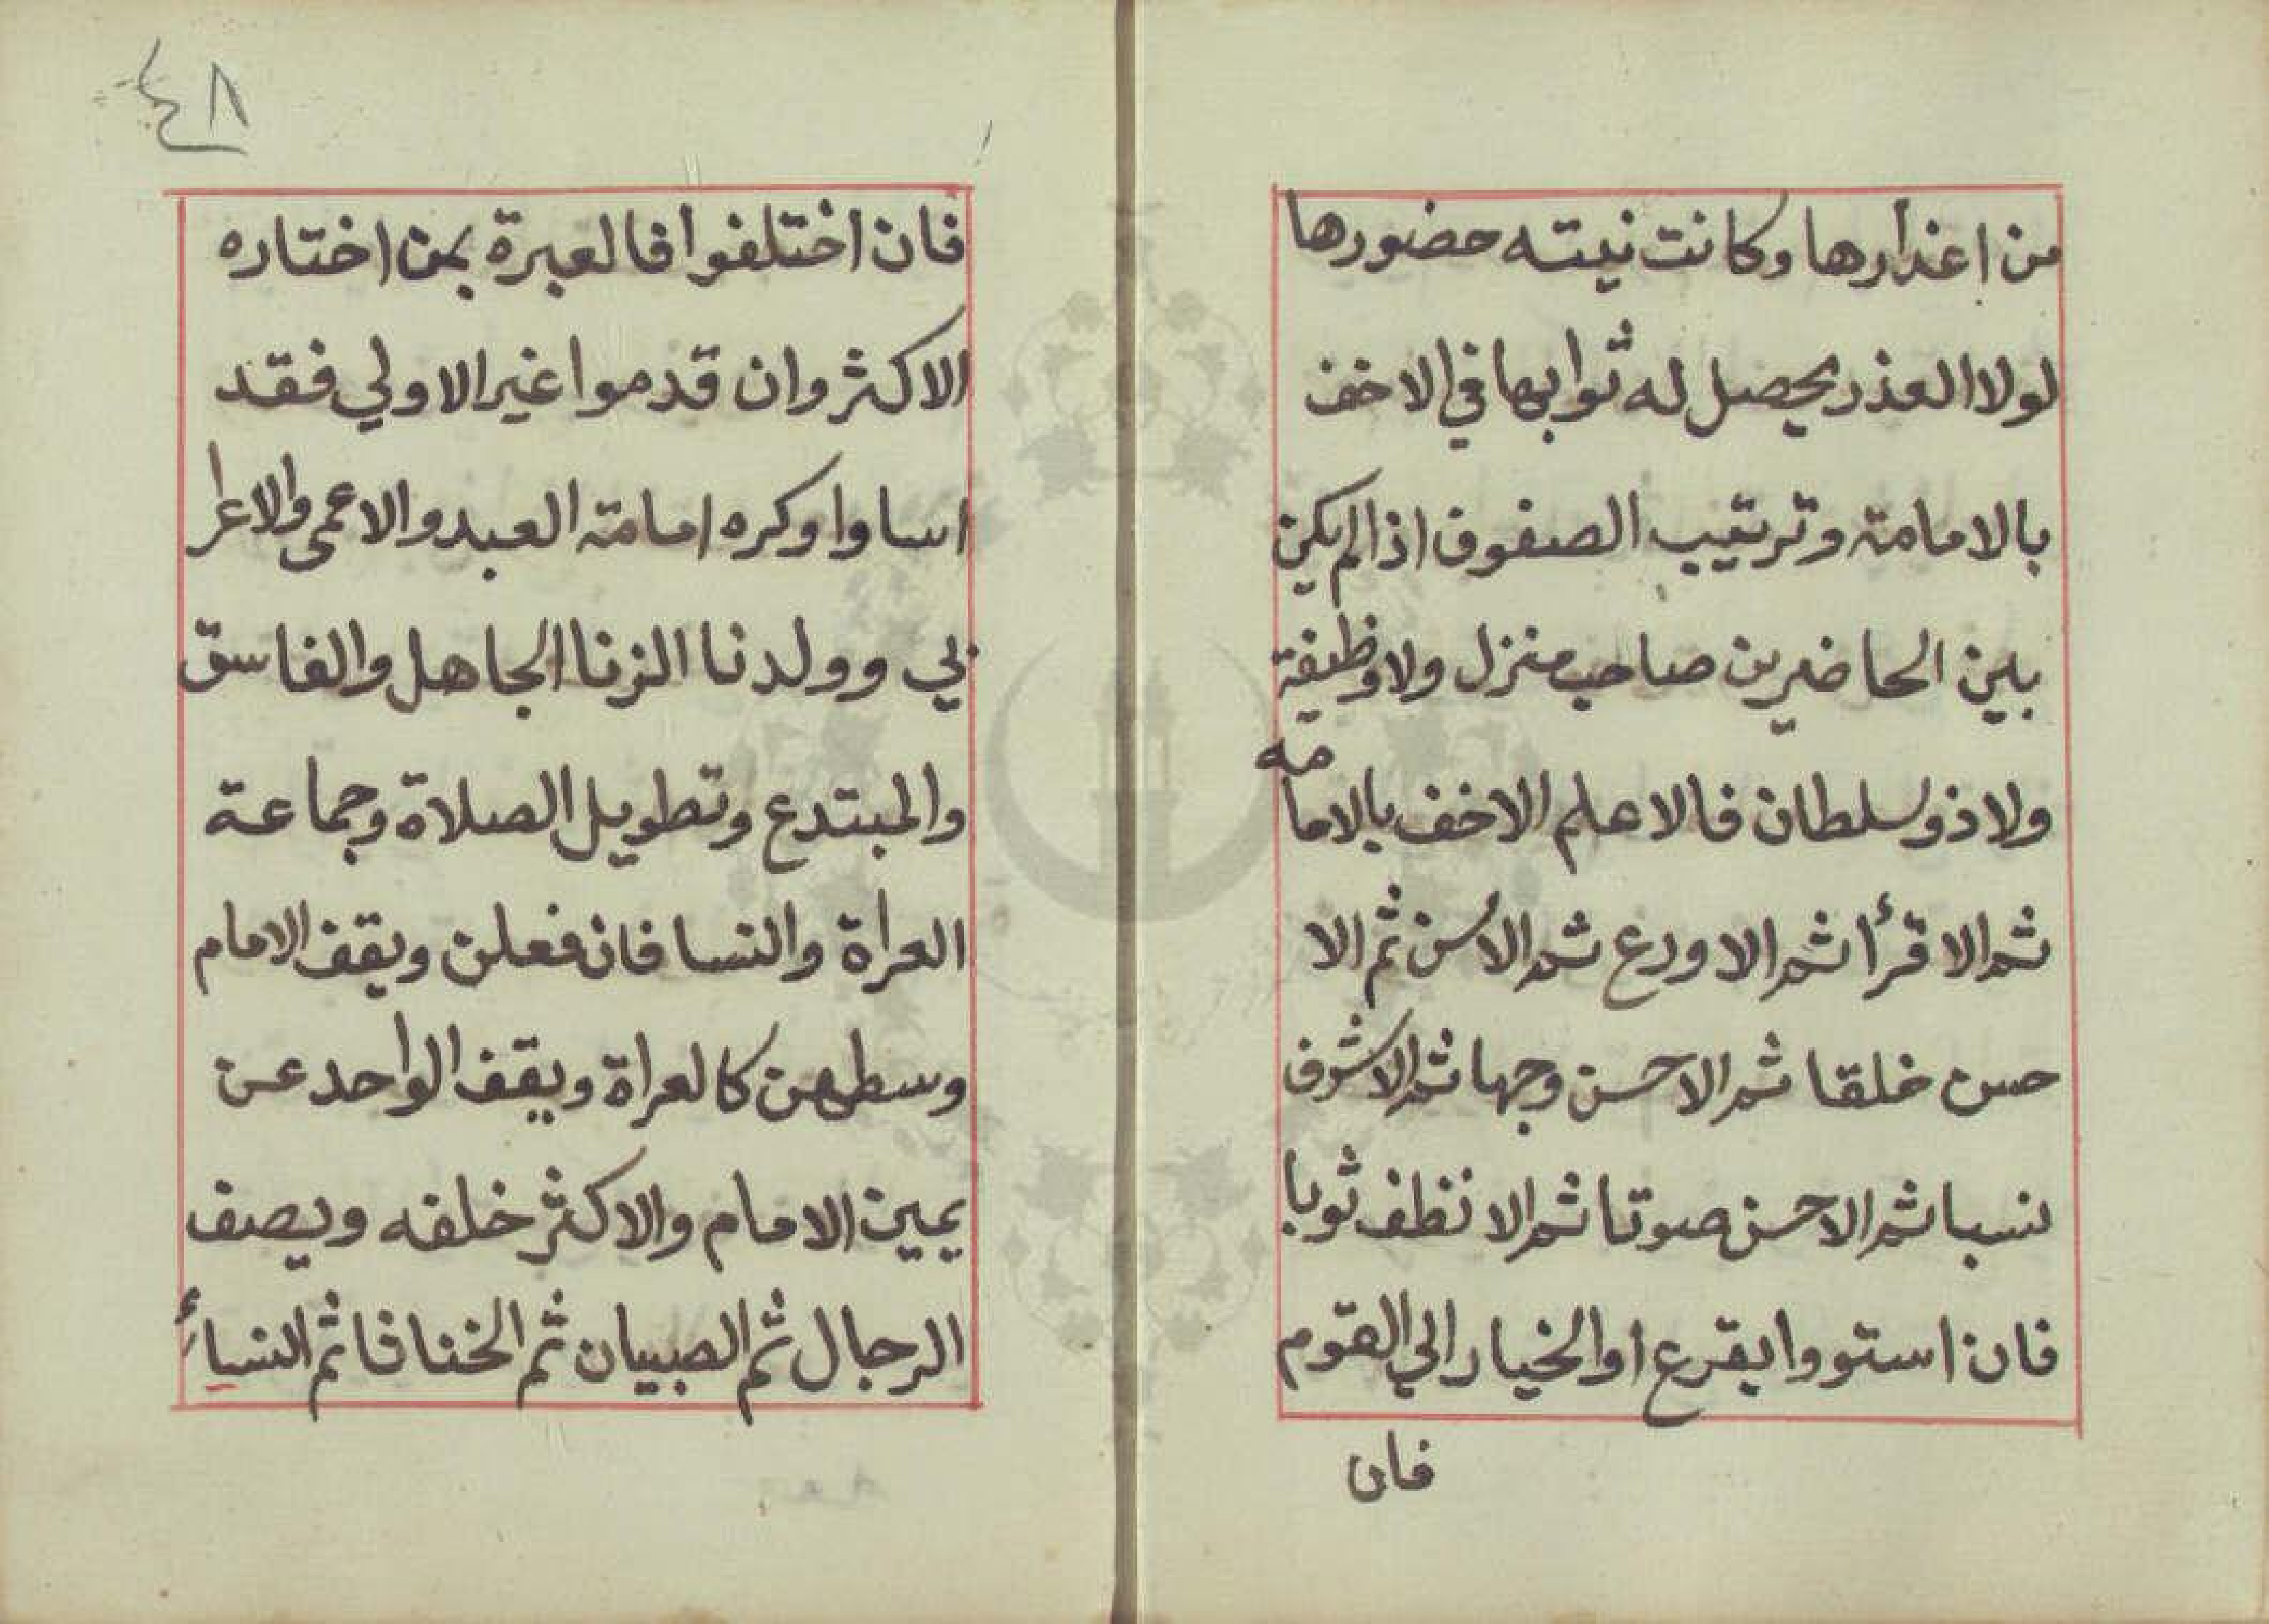 من اعذارها وكانت نيته حضورها
لولا العذر يحصل له ثوابها في الاخف
بالامامة وترتيب الصفوف اذا لم يكن
بين الحاضرين صاحب منزل ولا وظيفة
ولا ذو سلطان فالاعلم الاخف بالامامه
ثم الاقرأ ثم الاورع ثم الاسن ثم الا
حسن خلقا ثم الاحسن وجها ثم الاشرف
نسبا ثم الاحسن صوتا ثم الانظف ثوبا
فان استووا يقرع او الخيار الي القوم
فان
٤٨
فان اختلفوا فالعبرة بمن اختاره
الاكثر وان قدموا غير الاولي فقد
اساوا وكره امامة العبد والاعمى والاعرا
بي وولدنا الزنا الجاهل والفاسق
والمبتدع وتطويل الصلاة وجماعة
العراة والنسا فان فعلن ويقف الامام
وسطهن كالعراة ويقف الواحد عن
يمين الامام والاكثر خلفه ويصف
الرجال ثم الصبيان ثم الخناثا ثم النساء